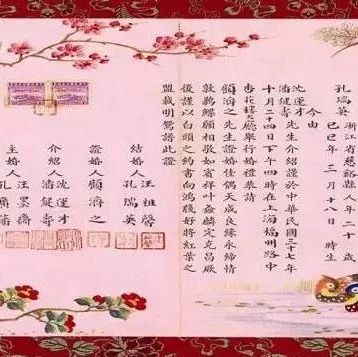 孔瑞英 浙江省慈谿縣人年二十 歲
己巳年二月十八日 時生
今由
沈運才
潘健壽
先生介紹謹於中華民國三十七年
十月二十四日下午四時在上海福州路中
杏花樓大廳舉行結婚典禮請
顧濟之先生證婚佳偶天成良緣永締情
敦鶼鰈願相敬如賓祥叶螽麟定克昌厥
後謹以白頭之約書向鴻牋好將紅葉之
盟載明鴛譜此證
結婚人 汪祖馨
孔瑞英
證婚人 顧濟之
介紹人 沈運才
潘健壽
主婚人 汪墨齋
孔